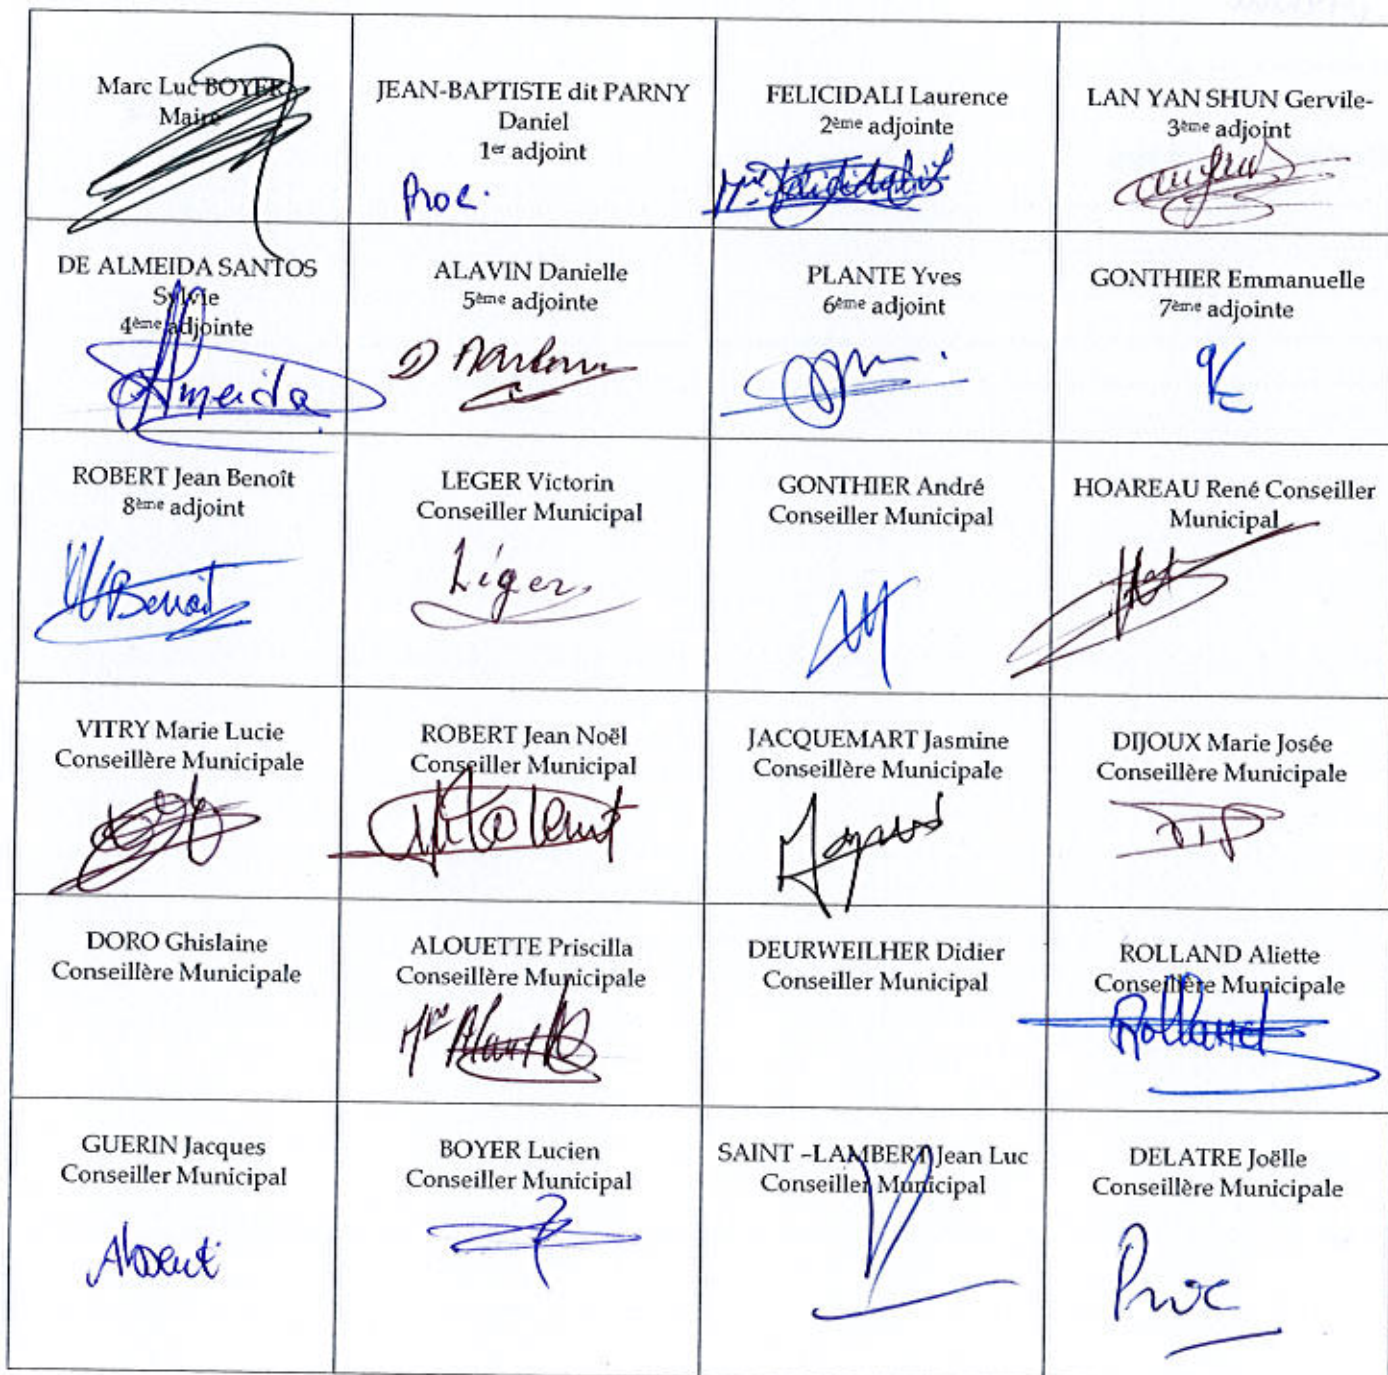 Marc Luc BOYER
Maire
JEAN-BAPTISTE dit PARNY
Daniel
1er adjoint
Proc.
FELICIDALI Laurence
2ème adjointe
LAN YAN SHUN Gervile-
3ème adjoint
DE ALMEIDA SANTOS
Sylvie
4ème adjointe
Almeida
ALAVIN Danielle
5ème adjointe
PLANTE Yves
6ème adjoint
GONTHIER Emmanuelle
7ème adjointe
ROBERT Jean Benoît
8ème adjoint
Benoit
LEGER Victorin
Conseiller Municipal
Léger
GONTHIER André
Conseiller Municipal
HOAREAU René Conseiller
Municipal
VITRY Marie Lucie
Conseillère Municipale
ROBERT Jean Noël
Conseiller Municipal
JACQUEMART Jasmine
Conseillère Municipale
DIJOUX Marie Josée
Conseillère Municipale
DORO Ghislaine
Conseillère Municipale
ALOUETTE Priscilla
Conseillère Municipale
DEURWEILHER Didier
Conseiller Municipal
ROLLAND Aliette
Conseillère Municipale
Rolland
GUERIN Jacques
Conseiller Municipal
Absent
BOYER Lucien
Conseiller Municipal
SAINT –LAMBERT Jean Luc
Conseiller Municipal
DELATRE Joëlle
Conseillère Municipale
Proc